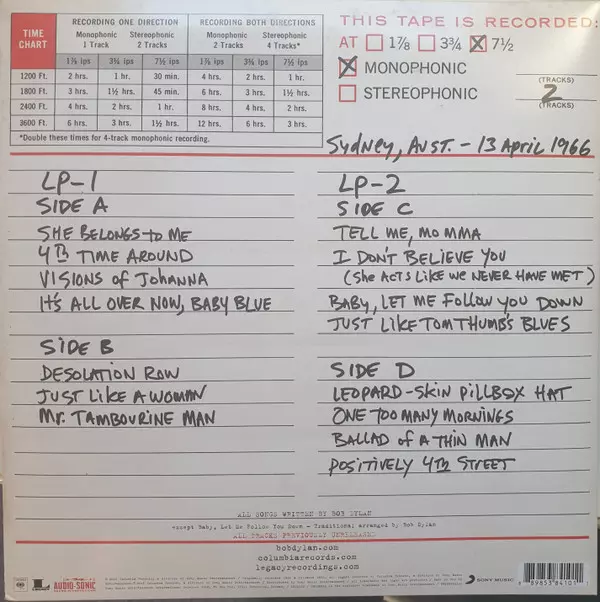 TIME CHART
RECORDING ONE DIRECTION
RECORDING BOTH DIRECTIONS
Monophonic 1 Track
Stereophonic 2 Tracks
Monophonic 2 Tracks
Stereophonic 4 Tracks*
1⅞ ips 3¾ ips 7½ ips 1⅞ ips 3¾ ips 7½ ips
1200 Ft. 2 hrs. 1 hr. 30 min. 4 hrs. 2 hrs. 1 hr.
1800 Ft. 3 hrs. 1½ hrs. 45 min. 6 hrs. 3 hrs. 1½ hrs.
2400 Ft. 4 hrs. 2 hrs. 1 hr. 8 hrs. 4 hrs. 2 hrs.
3600 Ft. 6 hrs. 3 hrs. 1½ hrs. 12 hrs. 6 hrs. 3 hrs.
*Double these times for 4-track monophonic recording.
THIS TAPE IS RECORDED:
AT 1⅞ 3¾ X 7½
X MONOPHONIC
(TRACKS)
STEREOPHONIC 2
(TRACKS)
Sydney, Aust. - 13 April 1966
LP-1
SIDE A
SHE BELONGS TO ME
4TH TIME AROUND
VISIONS of JOHANNA
IT'S ALL OVER NOW, BABY BLUE
SIDE B
DESOLATION ROW
JUST LIKE A WOMAN
Mr. TAMBOURINE MAN
LP-2
SIDE C
TELL ME, MOMMA
I DON'T BELIEVE YOU
(She ACTS LIKE WE NEVER HAVE MET)
BABY, LET ME FOLLOW YOU DOWN
JUST LIKE TOM THUMB'S BLUES
SIDE D
LEOPARD-SKIN PILLBOX HAT
ONE TOO MANY MORNINGS
BALLAD of A THIN MAN
POSITIVELY 4TH STREET
ALL SONGS WRITTEN BY BOB DYLAN
except Baby, Let Me Follow You Down - Traditional arranged by Bob Dylan
ALL TRACKS PREVIOUSLY UNRELEASED
bobdylan.com
columbiarecords.com
legacyrecordings.com
AUDIO-SONIC
SONY MUSIC